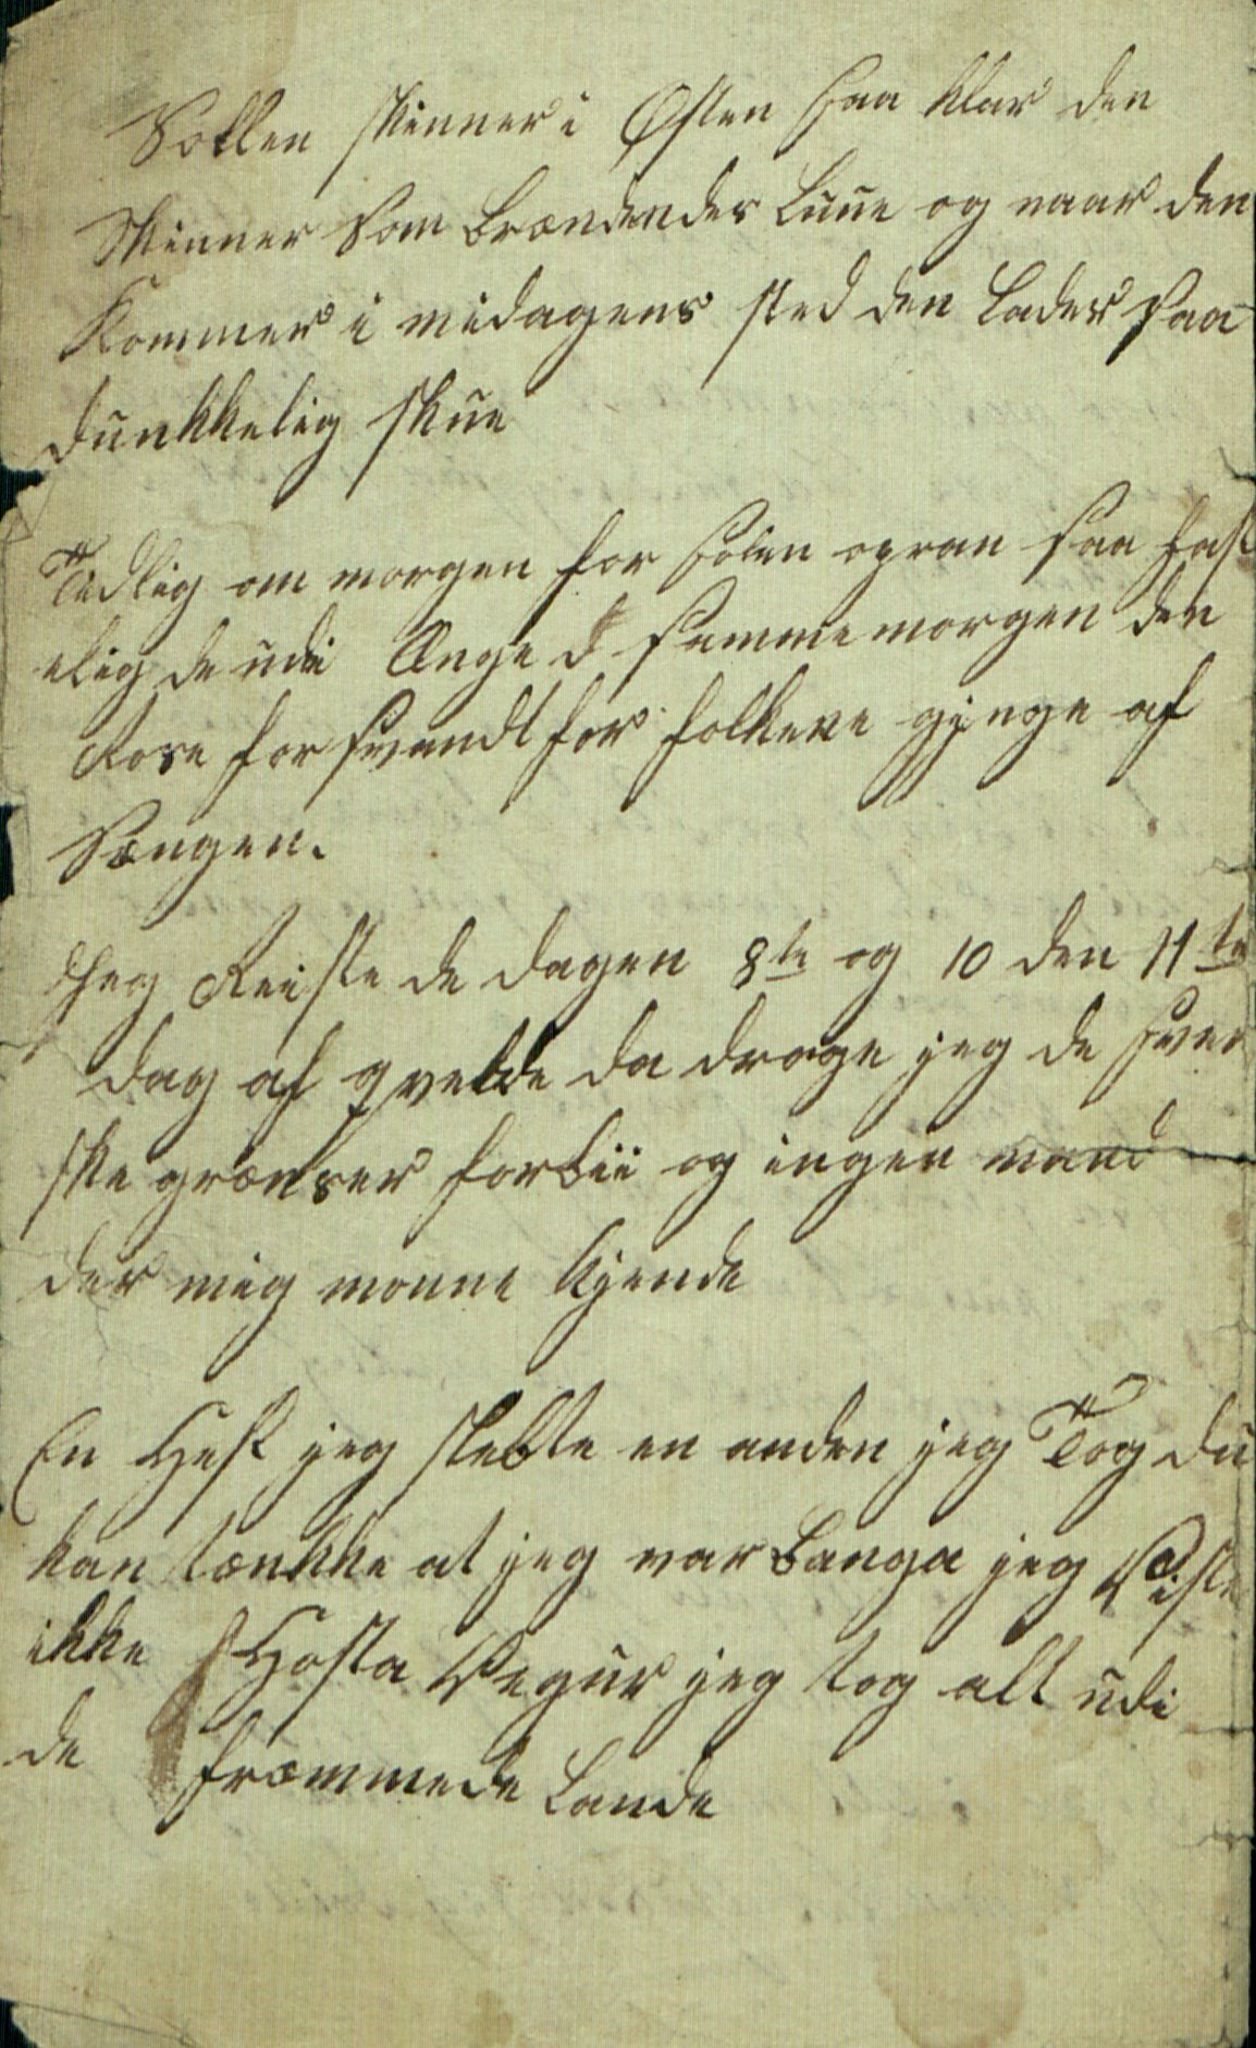 Sollen skinner i Østen saa klar den
Skinner Som Brændender Luue og naar den
Kommer i midagens sted den Lader saa
dunkkelig skue
Tidlig om morgen for Solen opran saa has
elig de udi Ænge d samme morgen den
Rose forsvandt for folkene ginge af
Sængen.
Jeg Reiste de dagen 8te og 10 den 11te
dag af qvelde da droge jeg de sven
ske grænser forbii og ingen mand
der mig monne kjende
En Hest jeg slebte en anden jeg Tog du
kan tænkke at jeg var Banga jeg Viste
ikke Hosta Vegur jeg tog alt udi
de fræmmede Lande